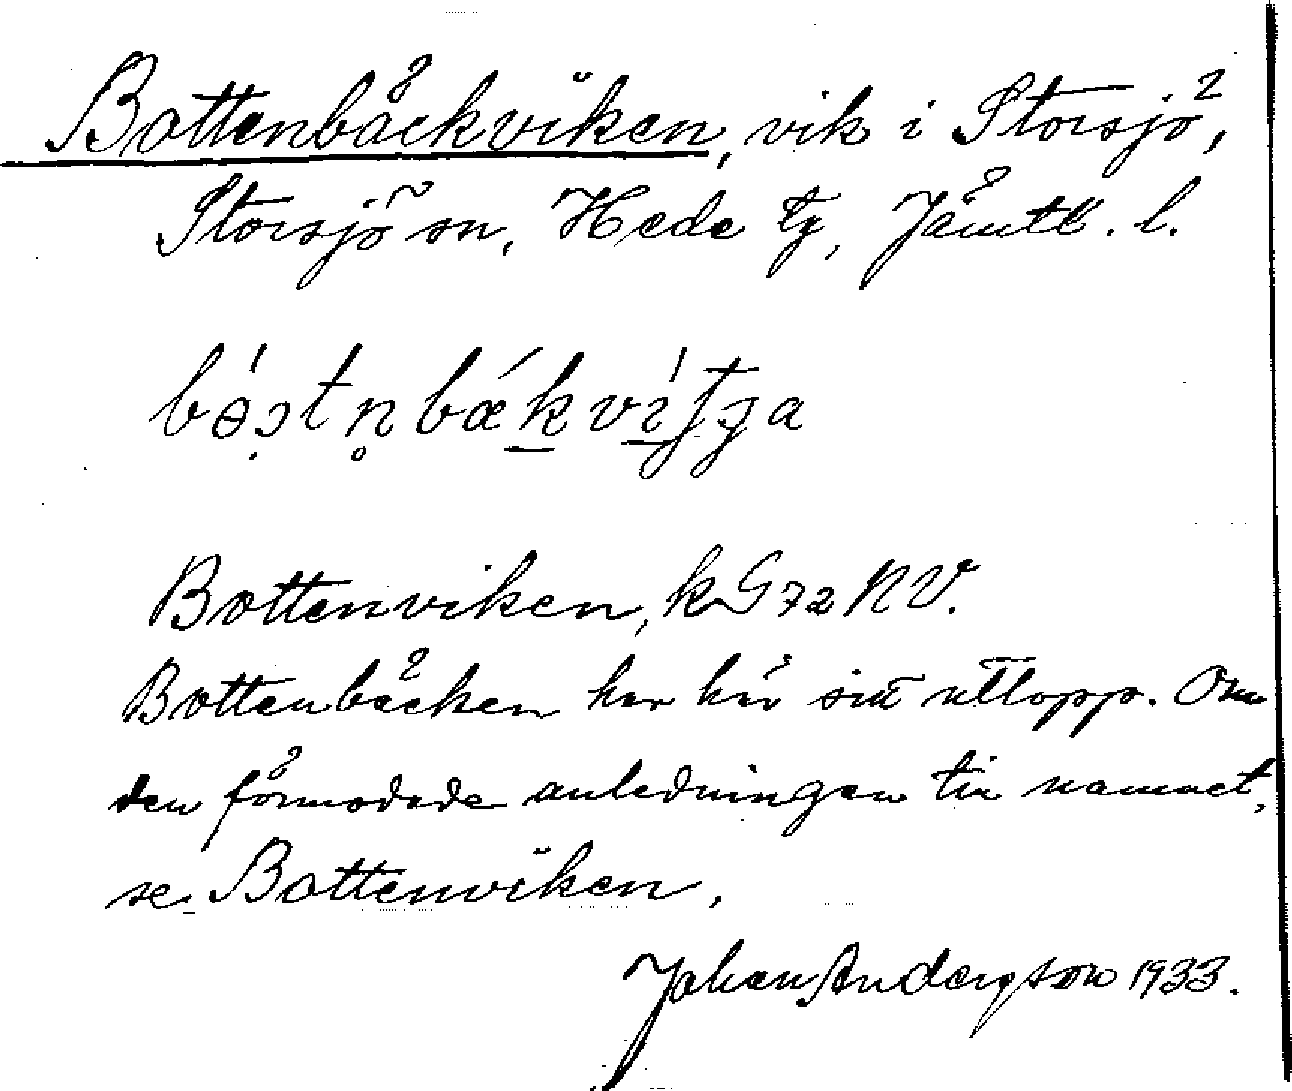 Bottenbäckviken, vik i Storsjö,
Storsjö sn, Hede tg, Jämtl. l.
Bottenviken, k G 72 NV.
Bottenbäcken har här sitt utlopp. Om
den förmodade anledningen till namnet,
se. Bottenviken.
Johan Andersson 1933.